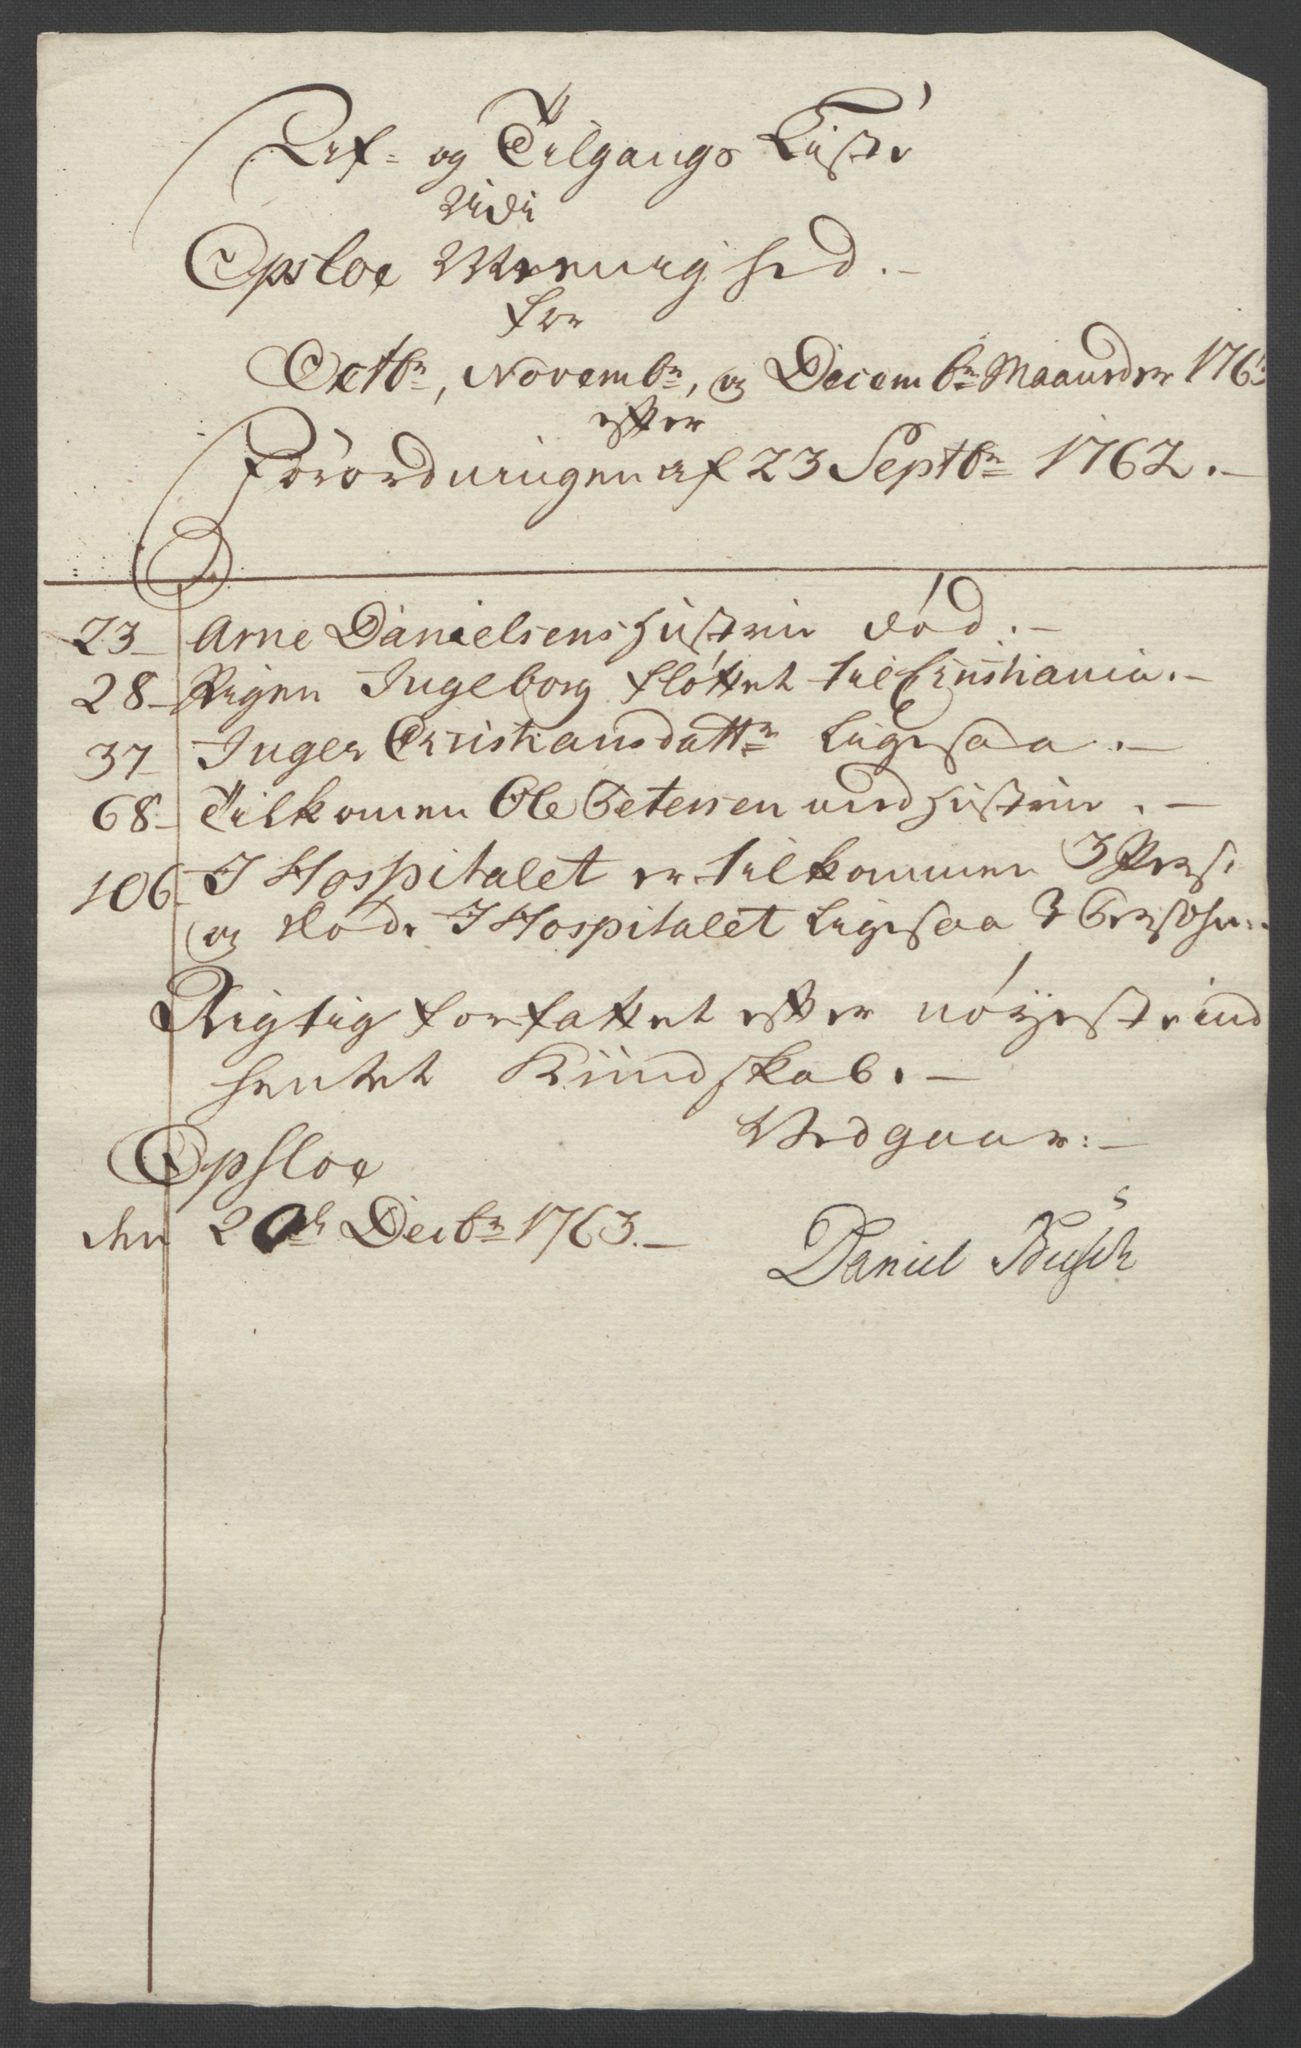 Af- og Tilgangs Liste
Ved
Opsloe Menighed.-
for
Octbr, Novembr, og Decembr Maaneder 1763
efter
Forordningen af 23 Septbr 1762.-
23- Arne Danielsens Hustrue död.-
28- Pigen Ingeborg fløttet til Cristiania.-
37- Inger Cristiansdattr Ligesaa.-
68- Tilkomen Ole Petersen med Hustrue.-
106- I Hospitalet er tilkommen 3 Pers:
og døde I Hospitalet Ligesaa 3 Persohn:
Rigtig forfattet efter nöyeste ind
hentet Kundskab.-
Opsloe Vedgaar:-
den Decbr 1763.- Daniel Busch